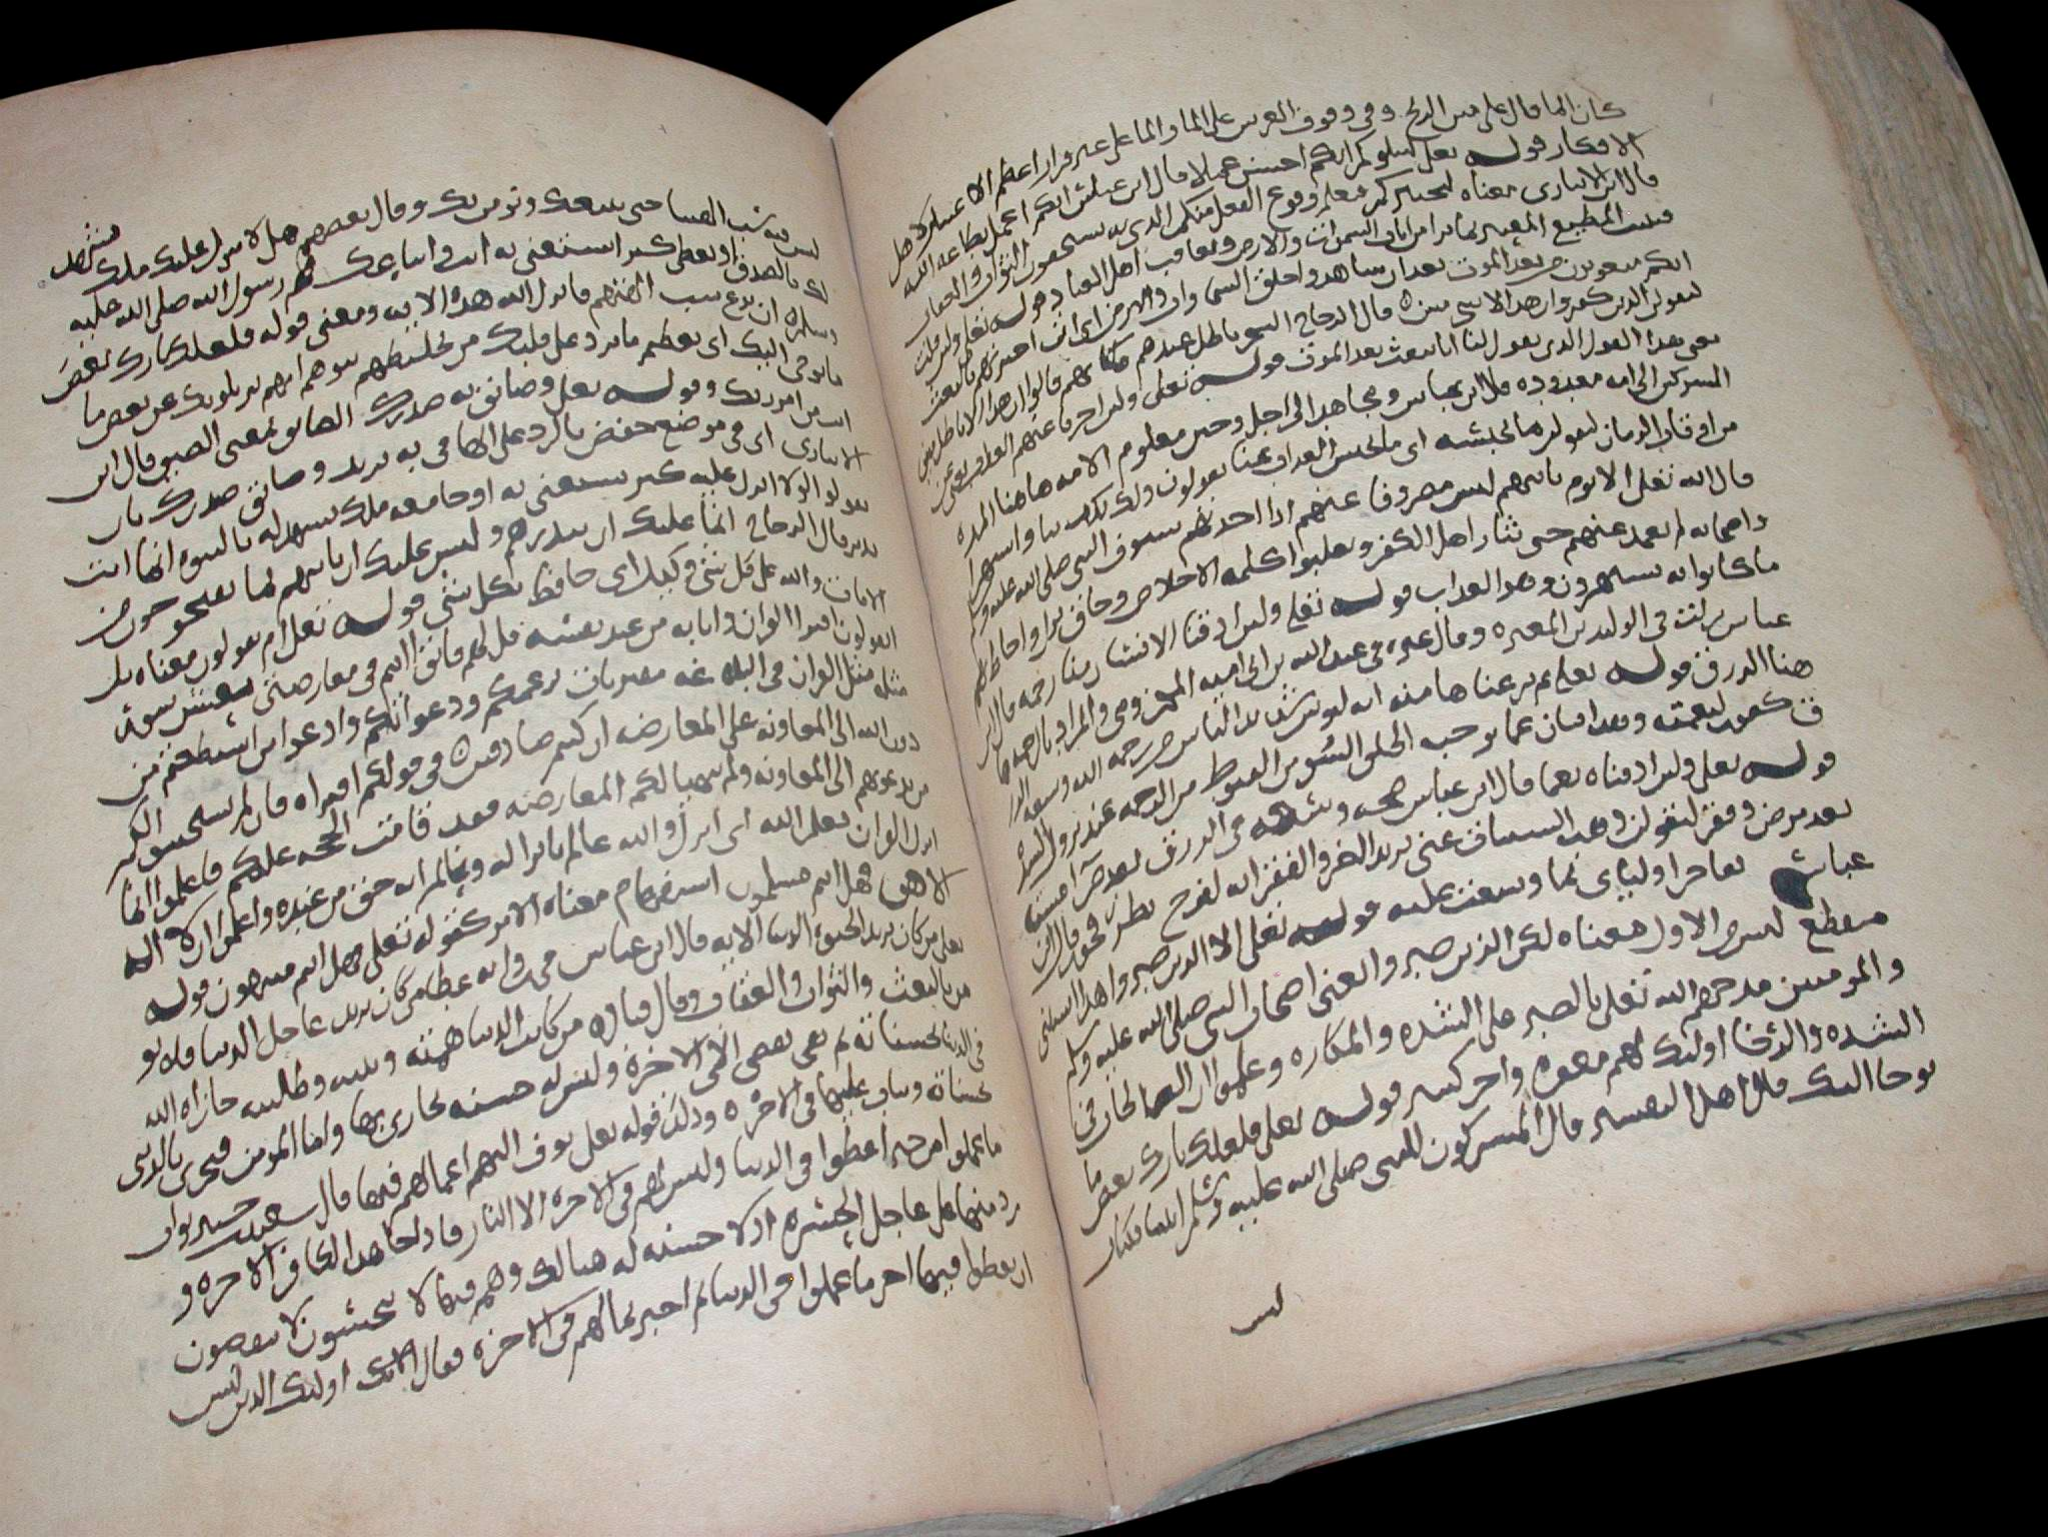 كان الما قال على متن الريح وفي وقوف العرش على الما والما على غير قرار اعظم الاعتبار لاهل
الافكار قوله تعالى ليبلوكم ايكم احسن عملا قال ابن عباس ايكم اعمل بطاعة الله
قال ابن الانباري معناه ليختبركم فيعلم وقوع الفعل منكم الذي به تستحقون الثواب والعقاب
فيثيب المطيع المعتبر بما يرا من ايات السموات والارض ويعاقب اهل العناد قوله تعالى ولين قلت
انكم مبعوثون من بعد الموت بعد ان شاهدوا خلق السماوات والارض اي ان اخبرتهم بالبعث
ليقولن الذين كفروا ان هذا الا سحر مبين قال الزجاج السحر باطل عندهم فكانهم قالوا ان هذا الا باطل بين
يعني هذا القول الذي يقول لنا انا نبعث بعد الموت قوله تعالى ولين اخرنا عنهم العذاب يعني عن
المشركين الى امه معدوده قال ابن عباس ومجاهد الى اجل وحين معلوم الامه هاهنا المده
من اوقات الزمان ليقولن ما يحبسه اي ما يحبس العذاب عنا يقولون ذلك تكذيبا واستهزا
قال الله تعالى الا يوم ياتيهم ليس مصروفا عنهم اذا اخذتهم سيوف النبي صلى الله عليه وسلم
واصحابه لم تغمد عنهم حتى تثار اهل الكفر وتعلوا كلمة الاخلاص وحاق نزل واحاط بهم
ما كانوا به يستهزون وهو العذاب قوله تعالى ولين اذقنا الانسان منا رحمه قال ابن
عباس نزلت في الوليد بن المغيره وقال غيره في عبد الله بن ابي اميه المخزومي والمراد بالرحمه ها
هنا الرزق قوله تعالى ثم نزعناها منه انه ليوس قنوط من رحمه الله وسعة الرزق
كفور لنعمته وهذا بيان عما يوجب الخلق السوء من القنوط من الرحمه عند نزول الشده
قوله تعالى ولين اذقناه نعما قال ابن عباس صحه وسعه في الرزق بعد ضرا مسته
بعد مرض وفقر ليقولن ذهب السيئات عني يريد الضر والفقر انه لفرح بطر فخور قال ابن
عباس يفاخر اوليائي بما وسعت عليه قوله تعالى الا الذين صبروا هذا استثنى
منقطع ليس من الاول معناه لكن الذين صبروا يعني اصحاب النبي صلى الله عليه وسلم
والمومنين مدحهم الله تعالى بالصبر على الشده والمكاره وعملوا الصالحات في
الشده والرخا اوليك لهم مغفره واجر كبير قوله تعالى فلعلك تارك بعض ما
يوحا اليك قال اهل التفسير قال المشركون للنبي صلى الله عليه وسلم ايتنا بكتاب
ليس
ليس فيه سب الهتنا حتى نتبعك ونومن بك وقال بعضهم هل لا ينزل عليك ملك يشهد
لك بالصدق او تعطى كنز استغنى به انت واتباعك فهم رسول الله صلى الله عليه
وسلم ان يدع سب الهتهم فانزل الله هذه الايه ومعنى قوله فلعلك تارك بعض
ما يوحى اليك اي لعظم ما يرد على قلبك من تخليطهم تتوهم انهم يزيلونك عن بعض ما
انت من امر ربك وقوله تعالى وضائق به صدرك الضائق بمعنى الضيق قال ابن
الانباري اي في موضع خفض بالرد على الها في به يريد وضائق صدرك بان
يقولوا لولا انزل عليه كنز يستغنى به او جا معه ملك يشهد له بالنبوه انما انت
نذير قال الزجاج انما عليك ان تنذرهم وليس عليك ان تاتيهم بما يقترحون من
الايات والله على كل شي وكيل اي حافظ لكل شي قوله تعالى ام يقولون معناه بل
ايقولون افترا القران واتا به من عند نفسه قل لهم فاتوا انتم في معارضتي بعشر سور
مثله مثل القران في البلاغه مفتريات بزعمكم ودعواكم وادعوا من استطعتم من
دون الله الى المعاونه على المعارضه ان كنتم صادقين في قولكم افتراه فان لم يستجيبوا لكم
من تدعونهم الى المعاونه ولم تتهيا لكم المعارضه فقد قامت الحجه عليكم فاعلموا انما
انزل القران بعلم الله اي انزل والله عالم بانزاله وعالم انه حق من عنده واعلموا ان لا اله
الا هو فهل انتم مسلمون استفهام معناه الامر كقوله تعالى فهل انتم منتهون قوله
تعالى من كان يريد الحيوة الدنيا الايه قال ابن عباس
من بالبعث والثواب والعقاب وقال قتاده من كانت الدنيا همته ونيته وطلبته جازاه الله
في الدنيا بحسناته ثم يفضي الى الاخرة وليس له حسنه يجازى بها واما المومن فيجزى بالدنى
بحسناته ويثاب عليها في الاخره وذلك قوله تعالى نوف اليهم اعمالهم فيها قال سعيد بن جبير ثواب
ما عملوا من خير اعطوا في الدنيا وليس لهم في الاخره الا النار
على عاجل الحسره اذ لا حسنه له هنالك وهم فيها لا يبخسون لا ينقصون
ان يعطوا فيها اجر ما عملوا في الدنيا ثم اخبر بما لهم في الاخره فقال اوليك الذين ليس